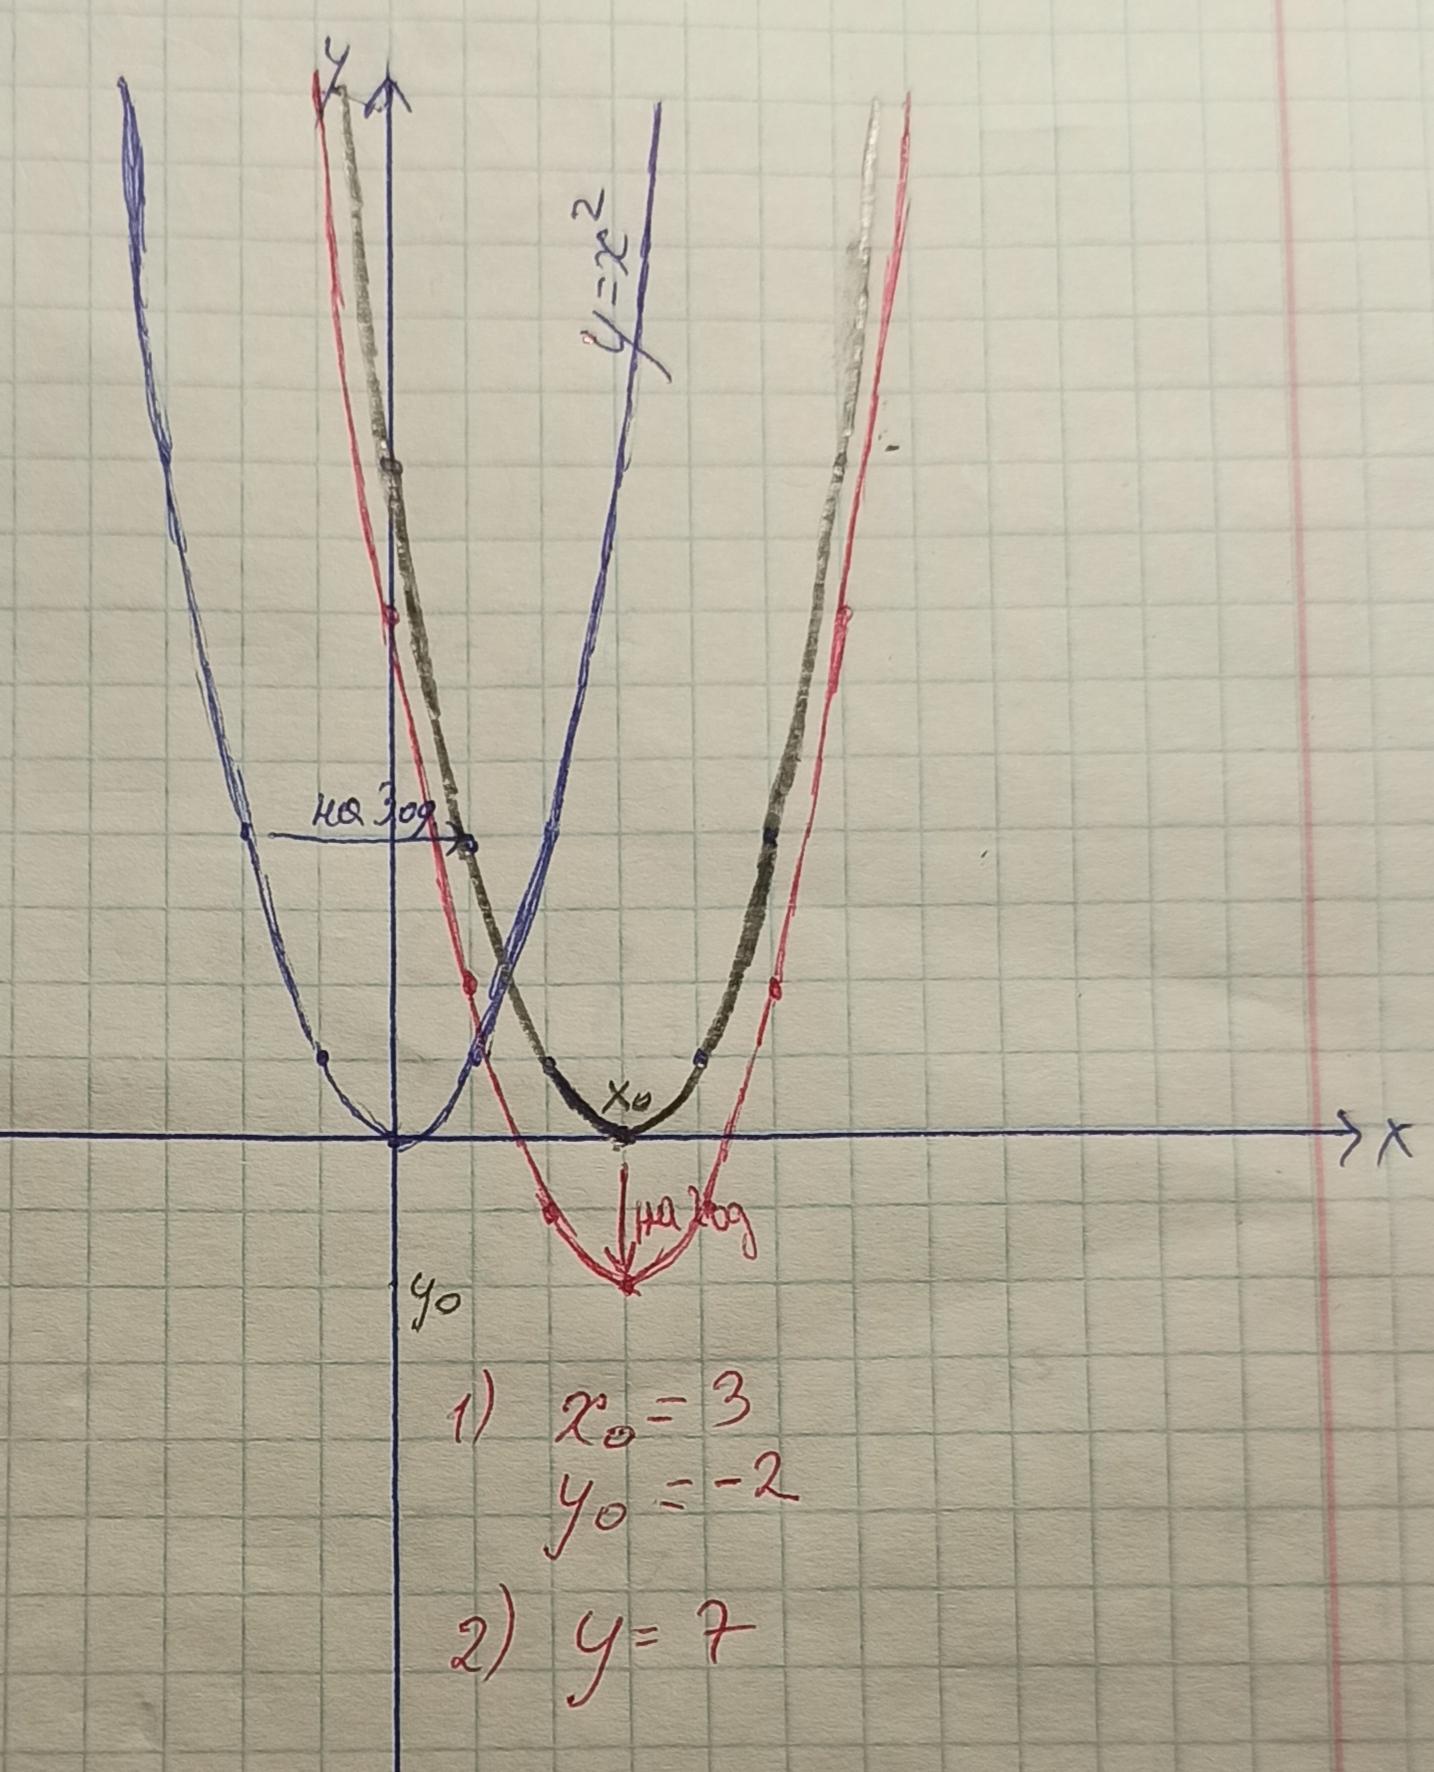 y
y=x²
на 3 ед
x₀
x
на 2 ед
y₀
1) x₀ = 3
y₀ = -2
2) y = 7